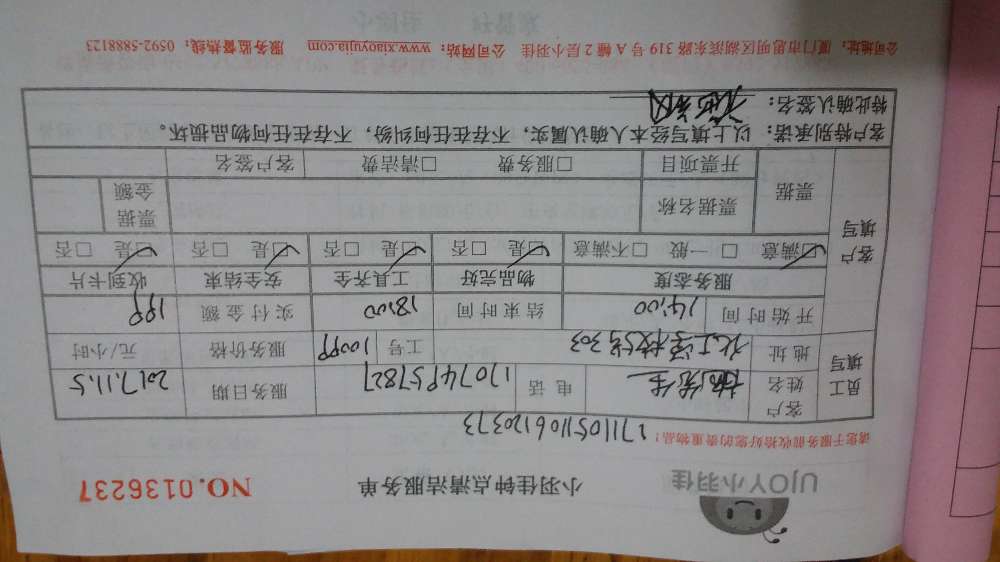 UJOY小羽佳
小羽佳钟点清洁服务单
NO.0136237
请您于服务前收拾好您的贵重物品！
1711051106120373
员工填写
客户姓名 先生 电话 17074957827 服务日期 2017.11.5
地址 化工学校5号303 工号 10099 服务价格 元/小时
开始时间 14:00 结束时间 18:00 实付金额 199
客户填写
服务态度 物品完好 工具齐全 安全结束 收到卡片
☑满意 □一般 □不满意 ☑是 □否 ☑是 □否 ☑是 □否 ☑是 □否
票据 票据名称 票据金额
开票项目 □服务费 □清洁费 客户签名
客户特别承诺：以上填写经本人确认属实，不存在任何纠纷，不存在任何物品损坏。
特此确认签名：
公司地址：厦门市思明区湖滨东路319号A幢2层小羽佳 公司网站：www.xiaoyujia.com 服务监督热线：0592-5888123